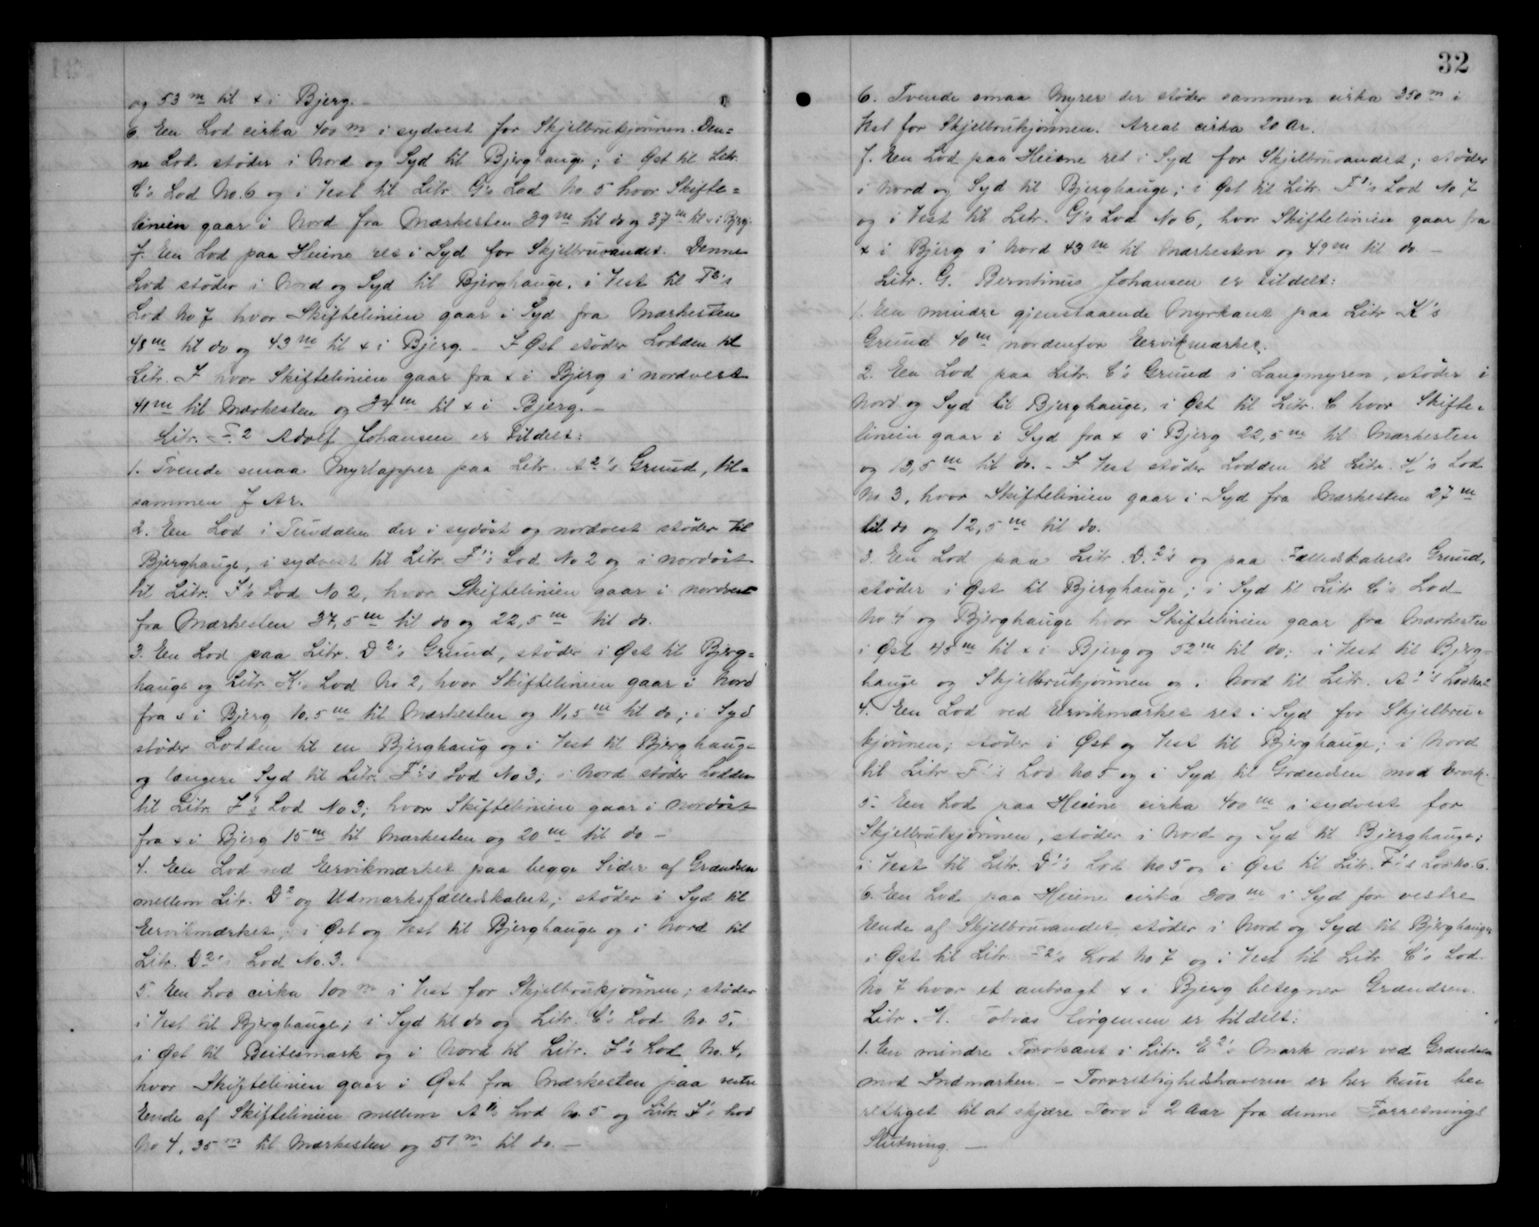 og 53 m til x i Bjerg. -
6. Een Lod cirka 400 m i sydvest for Skjelbrukjønnen. Den=
ne Lod støder i Nord og Syd til Bjerghauge; i Øst til Litr.
C's Lod No. 6 og i Vest til Litr. G's Lod No. 5 hvor Skifte=
linien gaar i Nord fra Mærkesten 39 m til do og 37 m til x i Bjerg.
7. Een Lod paa Heiene ret i Syd for Skjelbruvandet. Denne
Lod støder i Nord og Syd til Bjerghauge, i Vest til F2's
Lod No 7 hvor Skiftelinien gaar i Syd fra Mærkesten
48 m til do og 43 m til x i Bjerg. - I Øst støder Lodden til
Litr. I hvor Skiftelinien gaar fra x i Bjerg i nordvest
41 m til Mærkesten og 34 m til x i Bjerg. -
Litr. F2 Adolf Johansen er tildelt:
1. Tvende smaa Myrlapper paa Litr. A2's Grund, til=
sammen 7 Ar.
2. Een Lod i Trudalen der i sydøst og nordvest støder til
Bjerghauge, i sydvest til Litr. F1's Lod No 2 og i nordøst
til Litr. I's Lod No 2, hvor Skiftelinien gaar i nordvest
fra Mærkesten 37,5 m til do og 22,5 m til do.
3. Een Lod paa Litr. D2's Grund, støder i Øst til Bjerg=
hauge og Litr. K's Lod No 2, hvor Skiftelinien gaar i Nord
fra x i Bjerg 10,5 m til Mærkesten og 11,5 m til do; i Syd
støder Lodden til en Bjerghaug og i Vest til Bjerghauge
og længere Syd til Litr. F1's Lod No 3; i Nord støder Lodden
til Litr. I's Lod No 3; hvor Skiftelinien gaar i nordøst
fra x i Bjerg 15 m til Mærkesten og 20 m til do -
4. Een Lod ved Eervikmærket paa begge Sider af Grændsen
mellem Litr. D2 og Udmarksfælledskabet; støder i Syd til
Eervikmærket, i Øst og Vest til Bjerghauge og i Nord til
Litr. D2's Lod No. 3.
5. Een Lod cirka 100 m i Vest for Skjelbrukjønnen; støder
i Vest til Bjerghauge; i Syd til do og Litr. C's Lod No. 5,
i Øst til Beitesmark og i Nord til Litr. I's Lod No. 4,
hvor Skiftelinien gaar i Øst fra Mærkesten paa vestre
Eende af Skiftelinien mellem A1's Lod No. 5 og Litr. I's Lod
No 4, 35 m til Mærkesten og 51 m til do. -
32
6. Tvende smaa Myrer der støder sammen cirka 350 m i
Vest for Skjelbrukjønnen. Areal cirka 20 Ar.
7. Een Lod paa Heiene ret i Syd for Skjelbruvandet; støder
i Nord og Syd til Bjerghauge; i Øst til Litr. F1's Lod No 7
og i Vest til Litr. G's Lod No 6, hvor Skiftelinien gaar fra
x i Bjerg i Nord 43 m til Mærkesten og 49 m til do -
Litr. G. Berntinus Johansen er tildelt:
1. Een mindre gjenstaaende Myrkant paa Litr K's
Grund 40 m nordenfor Eervikmærket.
2. Een Lod paa Litr. C's Grund i Langmyren, støder i
Nord og Syd til Bjerghauge, i Øst til Litr. C hvor Skifte=
linien gaar i Syd fra x i Bjerg 22,5 m til Mærkesten
og 13,5 m til do. - I Vest støder Lodden til Litr. K's Lod
No 3, hvor Skiftelinien gaar i Syd fra Mærkesten 27 m
til do og 12,5 m til do.
3. Een Lod paa Litr. D.2's og paa Fælledskabets Grund,
støder i Øst til Bjerghauge; i Syd til Litr C's Lod
No 4 og Bjerghauge hvor Skiftelinien gaar fra Mærkesten
i Øst 48 m til x i Bjerg og 52 m til do; i Vest til Bjerg=
hauge og Skjelbrukjønnen og i Nord til Litr. A1's Lod No 2
4. Een Lod ved Eervikmærket ret i Syd for Skjelbru=
kjønnen; støder i Øst og Vest til Bjerghauge; i Nord
til Litr F1's Lod No 5 og i Syd til Grændsen mod Eervik.
5. Een Lod paa Heiene cirka 400 m i sydvest for
Skjelbrukjønnen, støder i Nord og Syd til Bjerghauge;
i Vest til Litr. D1's Lod No 5 og i Øst til Litr. F1's Lod No. 6.
6. Een Lod paa Heiene cirka 300 m i Syd for vestre
Eende af Skjelbruvandet støder i Nord og Syd til Bjerghauge
i Øst til Litr F2's Lod No 7 og i Vest til Litr C's Lod
No 7 hvor et anbragt x i Bjerg betegner Grændsen.
Litr. H. Tobias Jørgensen er tildelt:
1. Een mindre Torvkant i Litr. E2's Mark nær ved Grændsen
mod Indmarken. - Torvrettighedshaveren er her kun be
rettiget til at skjære Torv i 2 Aar fra denne Forretnings
Slutning. -